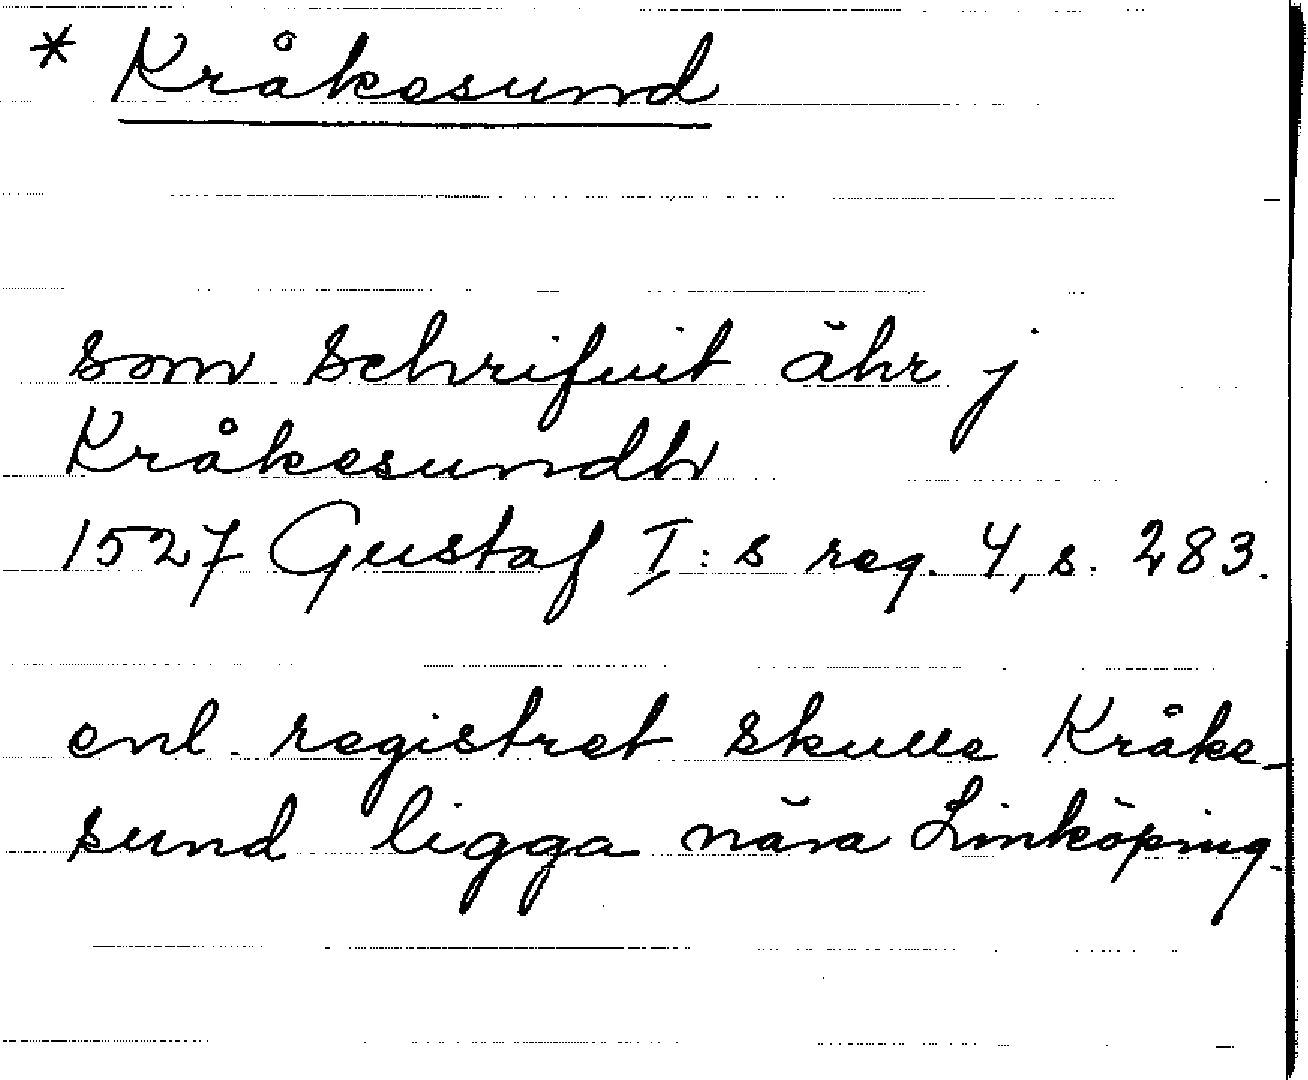 * Kråkesund
som schrifuit ähr j
Kråkesundh
1527 Gustaf I:s reg. 4, s. 283.
enl. registret skulle Kråke-
sund ligga nära Linköping.